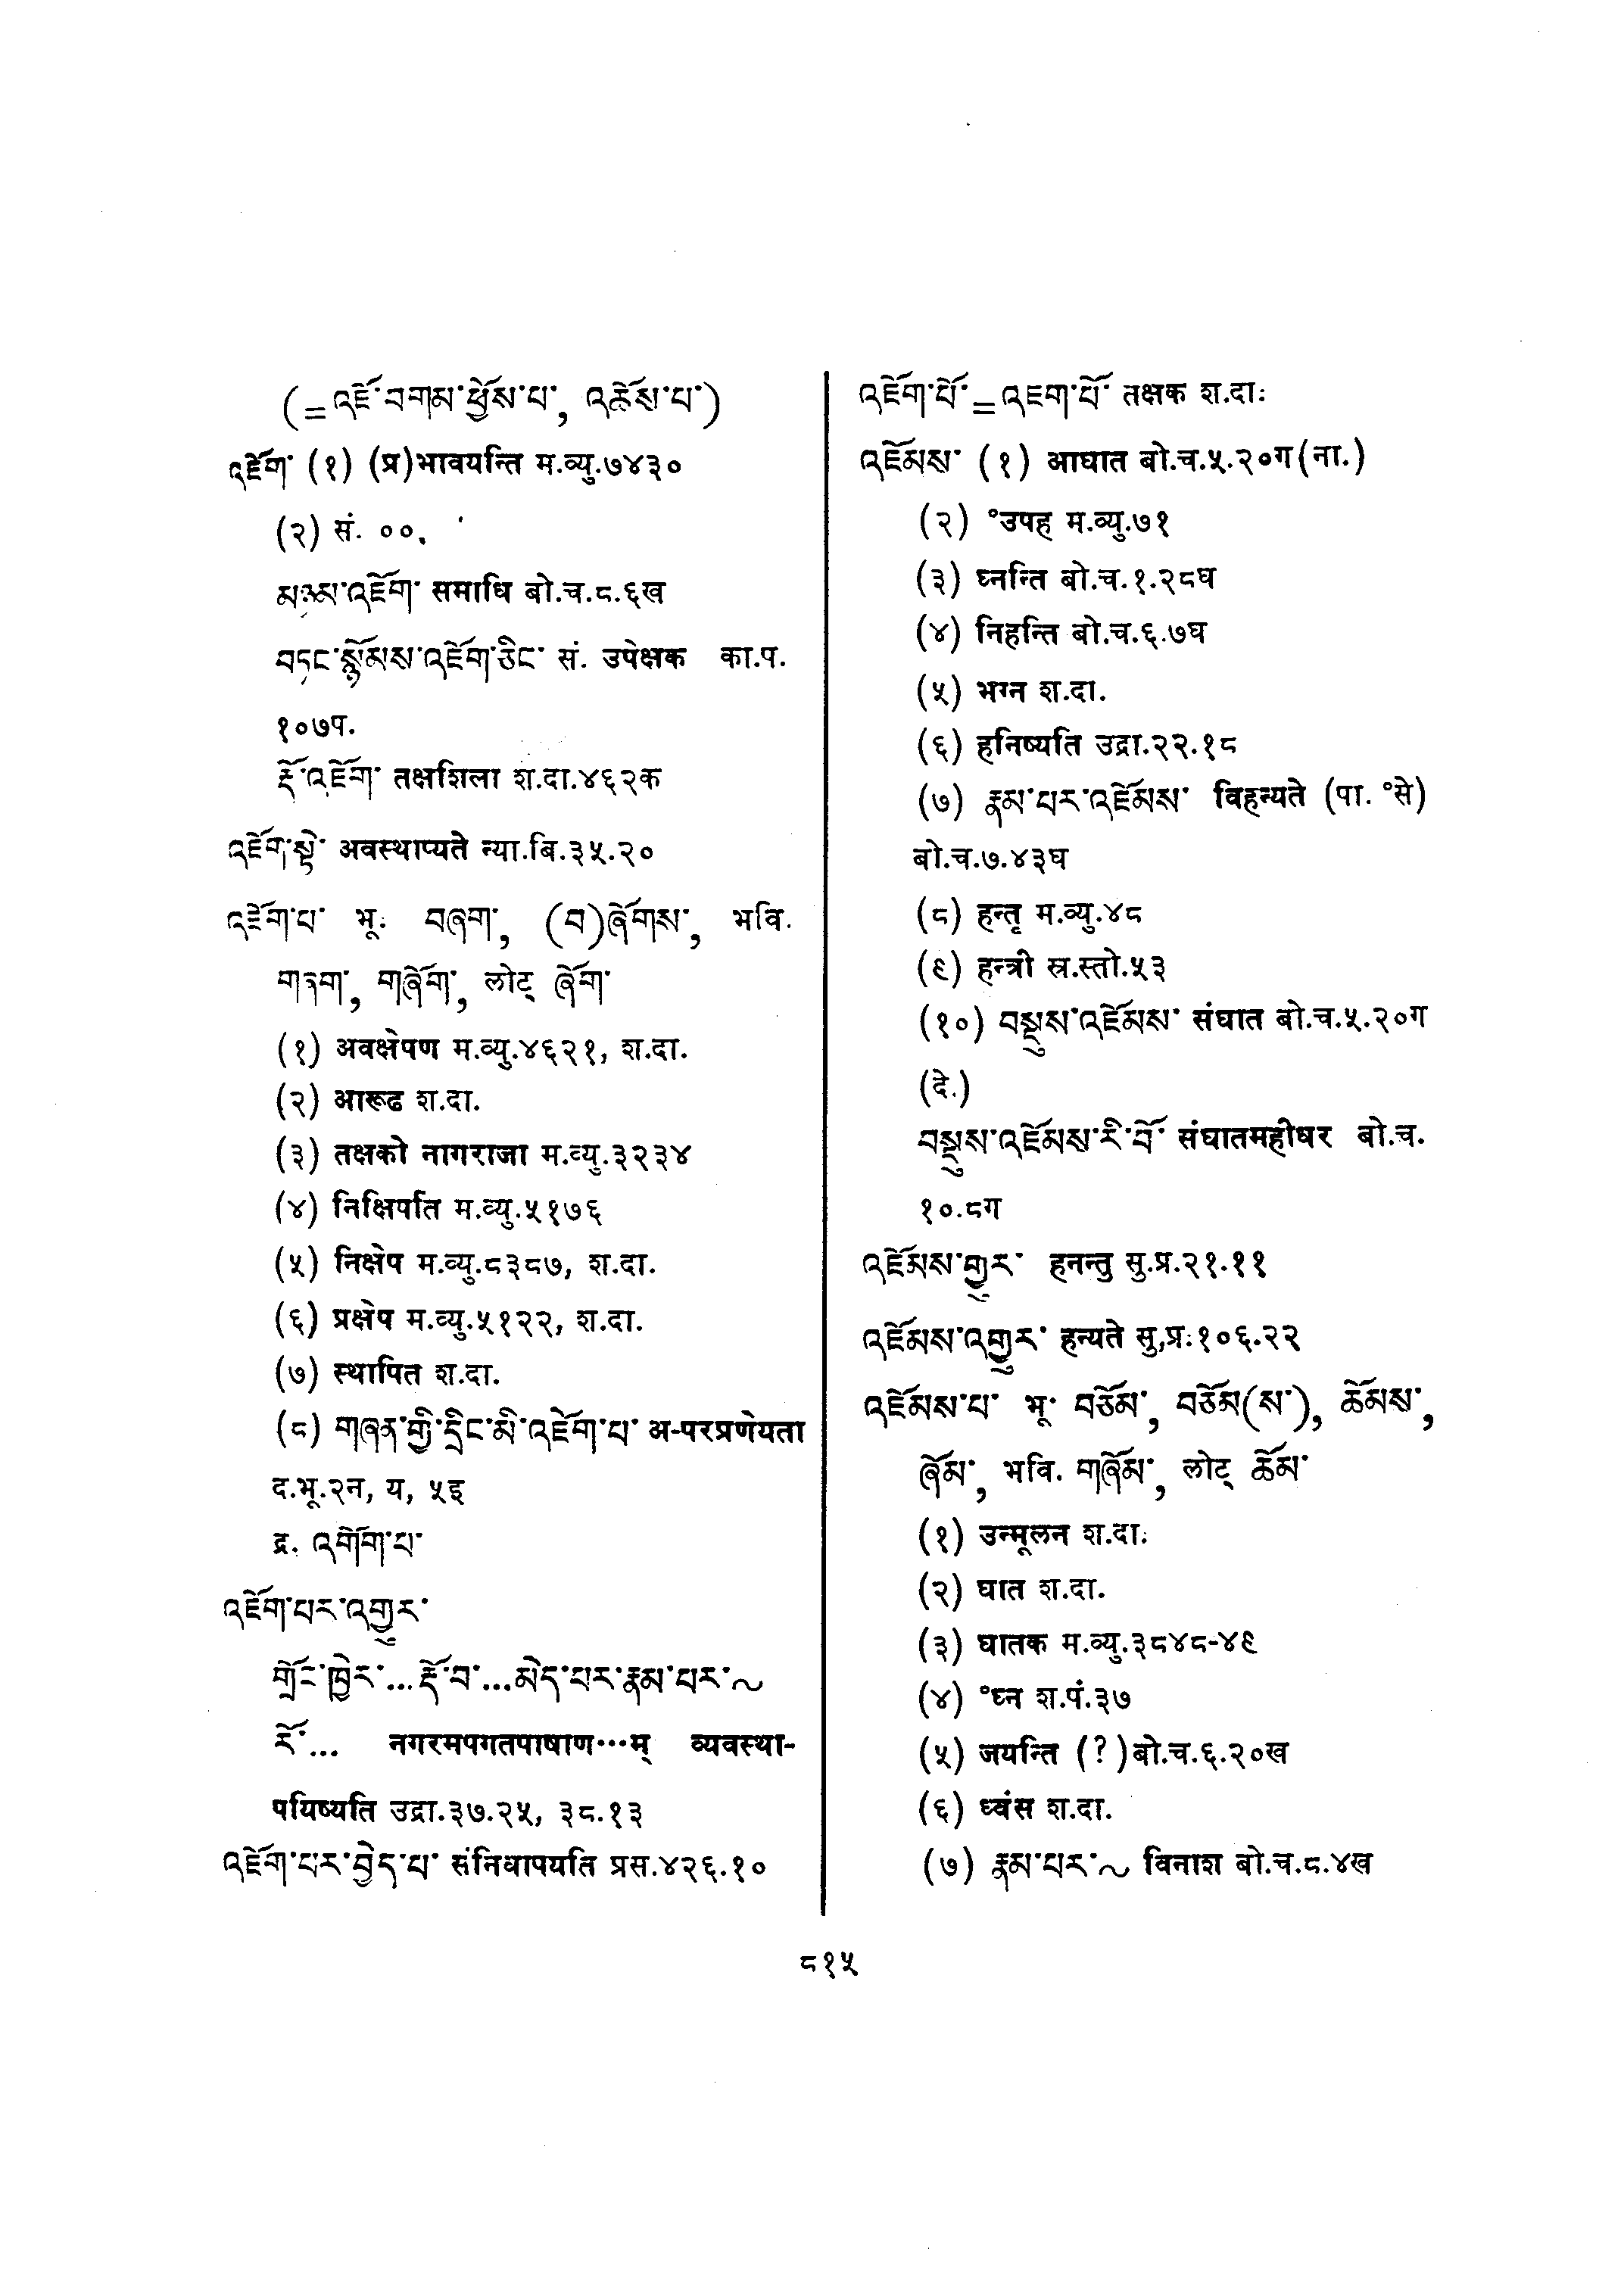 (=འཛོ་བགམ་ཕྱོས་པ་, འཚོས་པ་)
འཇོག་ (१) (प्र)भावयन्ति म.व्यु.७४३०
(२) सं. ००.
མཉམ་འཇོག་ समाधि बो.च.८.६ख
བཏང་སྙོམས་འཇོག་ཅིང་ सं. उपेक्षक का.प.
१०७प.
རྡོ་འཇོག་ तक्षशिला श.दा.४६२क
འཇོག་སྟེ་ अवस्थाप्यते न्या.बि.३५.२०
འཇོག་པ་ भू. བཞག་, (བ)ཞོགས་, भवि.
གཞག་, གཞོག་, लोट् ཞོག་
(१) अवक्षेपण म.व्यु.४६२१, श.दा.
(२) आरूढ श.दा.
(३) तक्षको नागराजा म.व्यु.३२३४
(४) निक्षिपति म.व्यु.५१७६
(५) निक्षेप म.व्यु.८३८७, श.दा.
(६) प्रक्षेप म.व्यु.५१२२, श.दा.
(७) स्थापित श.दा.
(८) གཞན་གྱི་དྲིང་མི་འཇོག་པ་ अ-परप्रणेयता
द.भू.२न, य, ५इ
द्र. འགོག་པ་
འཇོག་པར་འགྱུར་
གྲོང་ཁྱེར་...རྡོ་བ་...མེད་པར་རྣམ་པར་~
རོ་... नगरमपगतपाषाण···म् व्यवस्था-
पयिष्यति उद्रा.३७.२५, ३८.१३
འཇོག་པར་བྱེད་པ་ संनिधापयति प्रस.४२६.१०
འཇོག་པོ་=འཇག་པོ་ तक्षक श.दा.
འཇོམས་ (१) आघात बो.च.५.२०ग(ना.)
(२) °उपह म.व्यु.७१
(३) घ्नन्ति बो.च.१.२८घ
(४) निहन्ति बो.च.६.७घ
(५) भग्न श.दा.
(६) हनिष्यति उद्रा.२२.१८
(७) རྣམ་པར་འཇོམས་ विहन्यते (पा. °से)
बो.च.७.४३घ
(८) हन्तृ म.व्यु.४८
(९) हन्त्री स्र.स्तो.५३
(१०) བསྡུས་འཇོམས་ संघात बो.च.५.२०ग
(दे.)
བསྡུས་འཇོམས་རི་བོ་ संघातमहीधर बो.च.
१०.८ग
འཇོམས་གྱུར་ हनन्तु सु.प्र.२१.११
འཇོམས་འགྱུར་ हन्यते सु.प्र.१०६.२२
འཇོམས་པ་ भू. བཅོམ་, བཅོམ(ས་), ཆོམས་,
ཞོམ་, भवि. གཞོམ་, लोट् ཆོམ་
(१) उन्मूलन श.दा.
(२) घात श.दा.
(३) घातक म.व्यु.३८४८-४९
(४) °घ्न श.पं.३७
(५) जयन्ति (?)बो.च.६.२०ख
(६) ध्वंस श.दा.
(७) རྣམ་པར་~ विनाश बो.च.८.४ख
८१५